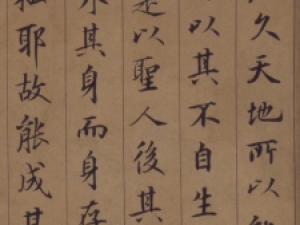 久天地所以能
以其不自生
是以聖人後其
外其身而身存
私耶故能成其